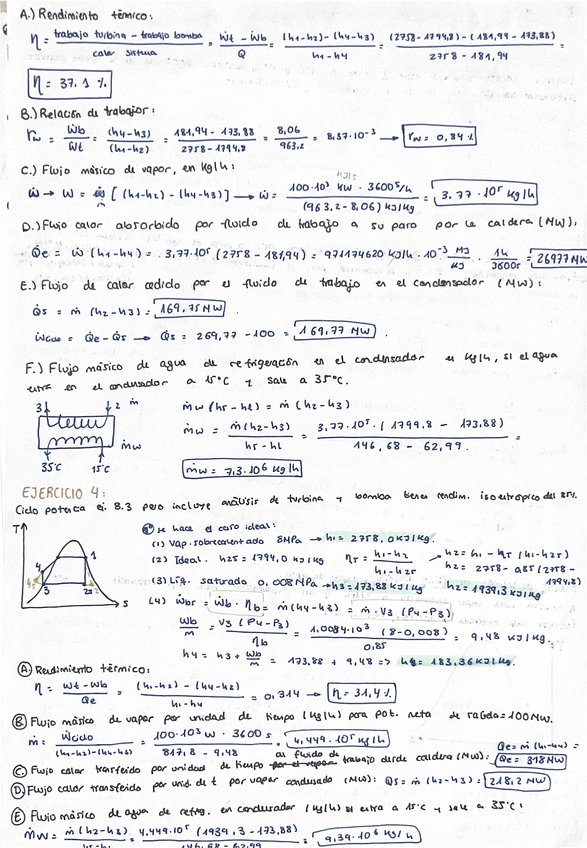 A.) Rendimiento térmico:
η = trabajo turbina - trabajo bomba / calor sistema = Ẇt - Ẇb / Q = (h1-h2)-(h4-h3) / h1-h4 = (2758-1794,8)-(181,94-173,88) / 2758-181,94 =
η = 37.1 %
B.) Relación de trabajo:
rw = Ẇb / Ẇt = (h4-h3) / (h1-h2) = 181,94-173,88 / 2758-1794,8 = 8,06 / 963,2 = 8,37·10⁻³ → rw = 0,84 %
C.) Flujo másico de vapor, en kg/h:
Ẇ → W = ṁ [(h1-h2)-(h4-h3)] → ẇ = 100·10³ KW · 3600 s/h / (963,2-8,06) kJ/kg = 3.77·10⁵ kg/h
D.) Flujo calor absorbido por fluido de trabajo a su paso por la caldera (MW):
Q̇e = ẇ (h1-h4) = 3,77·10⁵ (2758-181,94) = 971174620 kJ/h · 10⁻³ MJ/kJ · 1h/3600s = 26977 MW
E.) Flujo de calor cedido por el fluido de trabajo en el condensador (MW):
Q̇s = ṁ (h2-h3) = 169,75 MW
Q̇e - Q̇s → Q̇s = 269,77 - 100 = 169,77 MW
F.) Flujo másico de agua de refrigeración en el condensador en kg/h, si el agua
entra en el condensador a 15°C y sale a 35°C.
3 2 ṁ
ṁw
35°C 15°C
ṁw (h5-he) = ṁ (h2-h3)
ṁw = ṁ(h2-h3) / h5-he = 3,77·10⁵ (1794,8 - 173,88) / 146,68 - 62,99 =
ṁw = 7,3·10⁶ kg/h
EJERCICIO 4:
Ciclo potencia ej. 8.3 pero incluye análisis de turbina y bomba tienen rendim. isoentrópico del 85%.
T
4
1
3
2s
s
se hace el caso ideal:
(1) Vap. sobrecalentado 8MPa → h1 = 2758,0 kJ/kg.
(2) Ideal. h2s = 1794,0 kJ/kg ηT = h1-h2 / h1-h2s → h2 = h1 - ηT (h1-h2s)
h2 = 2758 - 0,85 (2758-1794,8)
(3) Líq. saturado 0,008MPa → h3 = 173,88 kJ/kg h2 = 1939,3 kJ/kg
(4) Ẇbs = Ẇb · ηb = ṁ(h4-h3) = ṁ · V3 (P4-P3)
Ẇb / ṁ = V3 (P4-P3) / ηb = 1,0084·10³ (8-0,008) / 0,85 = 9,48 kJ/kg.
h4 = h3 + Ẇb/ṁ = 173,88 + 9,48 => h4 = 183,36 kJ/kg.
A Rendimiento térmico:
η = Wt - Wb / Qe = (h1-h2) - (h4-h3) / h1-h4 = 0,314 → η = 31,4 %
B Flujo másico de vapor por unidad de tiempo (kg/h) para pot. neta de 100MW.
ṁ: Ẇciclo / (h1-h2)-(h4-h3) = 100·10³ W · 3600 s / 817,8 - 9,48 = 4,449·10⁵ kg/h
Q̇e = ṁ (h1-h4) =
C Flujo calor transferido por unidad de tiempo al fluido de trabajo desde caldera (MW): Q̇e = 318 MW
D Flujo calor transferido por unid. de t por vapor condensado (MW): Q̇s = ṁ (h2-h3) = 218,2 MW
E Flujo másico de agua de refrig. en condensador (kg/h) si entra a 15°C y sale a 35°C:
ṁw = ṁ(h2-h3) / h5-he = 4,449·10⁵ (1939,3 - 173,88) / 146,68 - 62,99 = 9,39·10⁶ kg/h